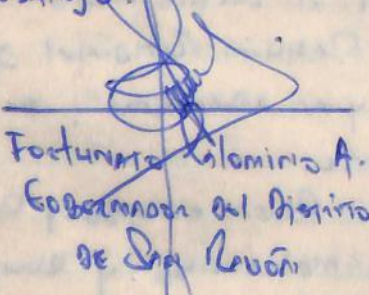 Fortunato Palomino A.
Gobernador del Distrito
DE San Ramón